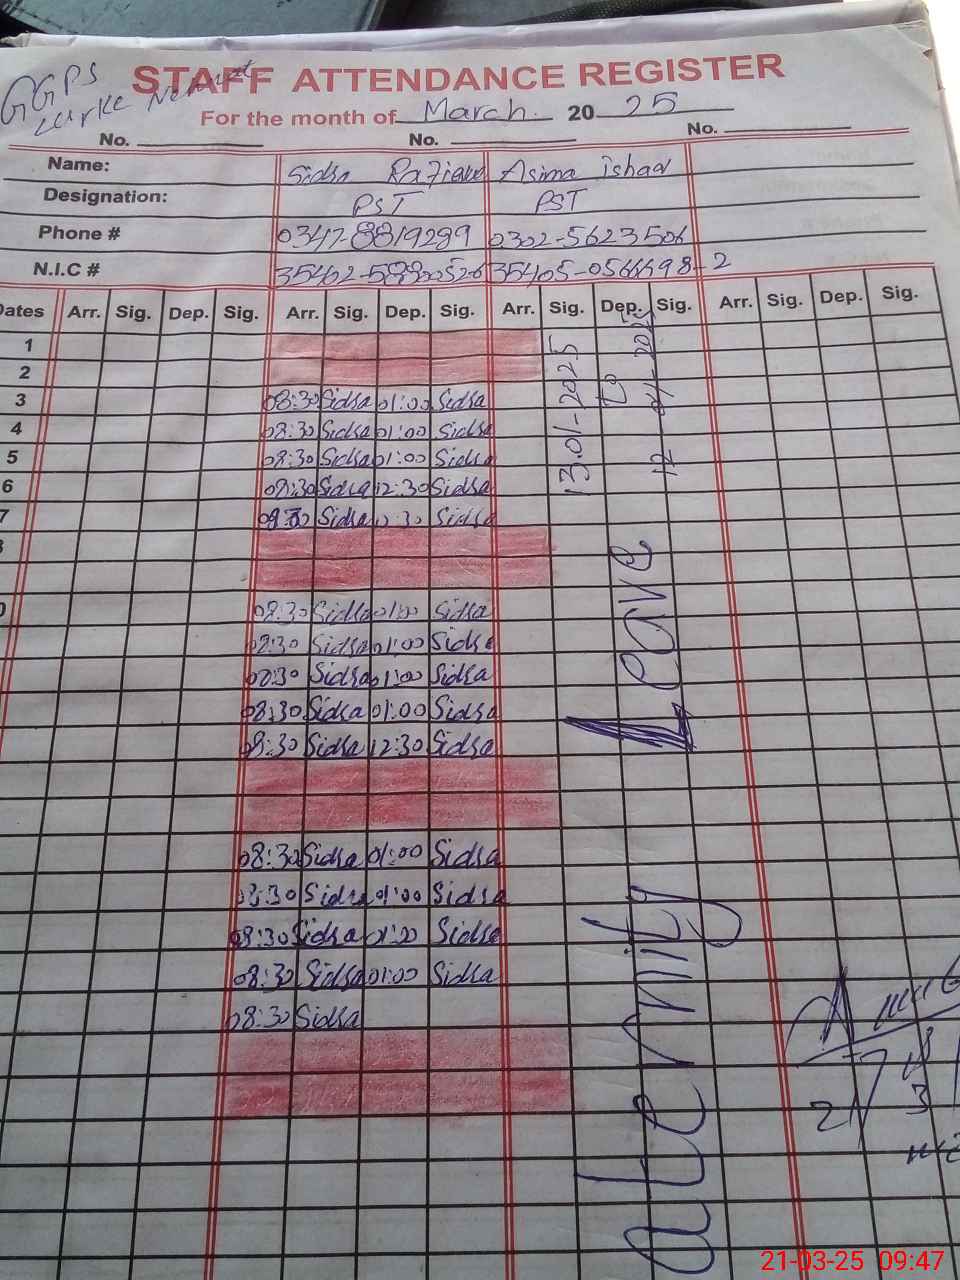 GGPS
STAFF ATTENDANCE REGISTER
For the month of March. 20 25
No. No. No.
Name: Sidsa Asima Ishaq
Designation: PST PST
Phone # 0347-8819299 0302-5623506
N.I.C #
Dates Arr. Sig. Dep. Sig. Arr. Sig. Dep. Sig. Arr. Sig. Dep. Sig. Arr. Sig. Dep. Sig.
1
2
3 08:30 Sidsa 01:00 Sidsa
4 08:30 Sidsa 01:00 Sidsa
5 08:30 Sidsa 01:00 Sidsa
6 08:30 Sidsa 12:30 Sidsa
7 Sidsa 12:30 Sidsa
08:30 Sidsa 01:00 Sidsa
08:30 Sidsa 01:00 Sidsa
08:30 Sidsa 01:00 Sidsa
08:30 Sidsa 01:00 Sidsa
08:30 Sidsa 12:30 Sidsa
08:30 Sidsa 01:00 Sidsa
08:30 Sidsa 01:00 Sidsa
08:30 Sidsa 01:00 Sidsa
08:30 Sidsa 01:00 Sidsa
08:30 Sidsa
13.01-2025
to
aternity Leave
21-03-25 09:47